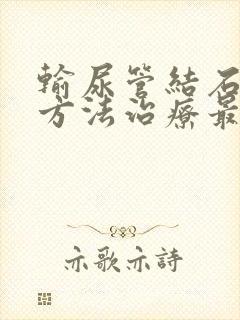 輸尿管結石
方法治療最
亦歌亦詩